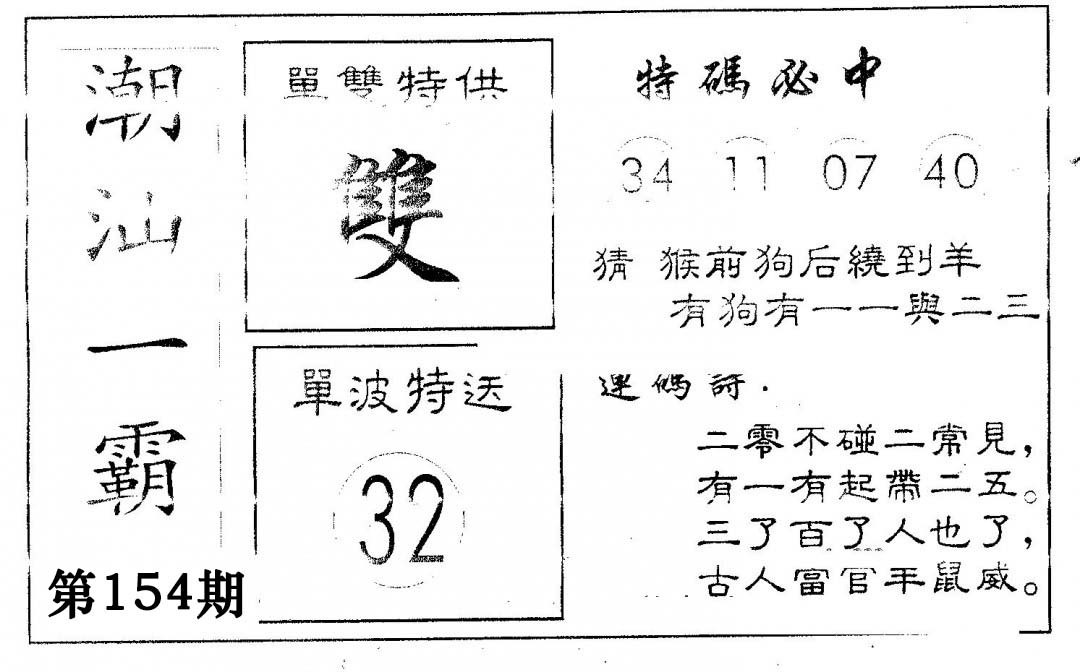 潮汕一霸
第154期
單雙特供
雙
單波特送
32
特碼必中
34 11 07 40
猜 猴前狗后繞到羊
有狗有一一與二三
連碼詩.
二零不碰二常見，
有一有起帶二五。
三了百了人也了，
古人富官平鼠威。